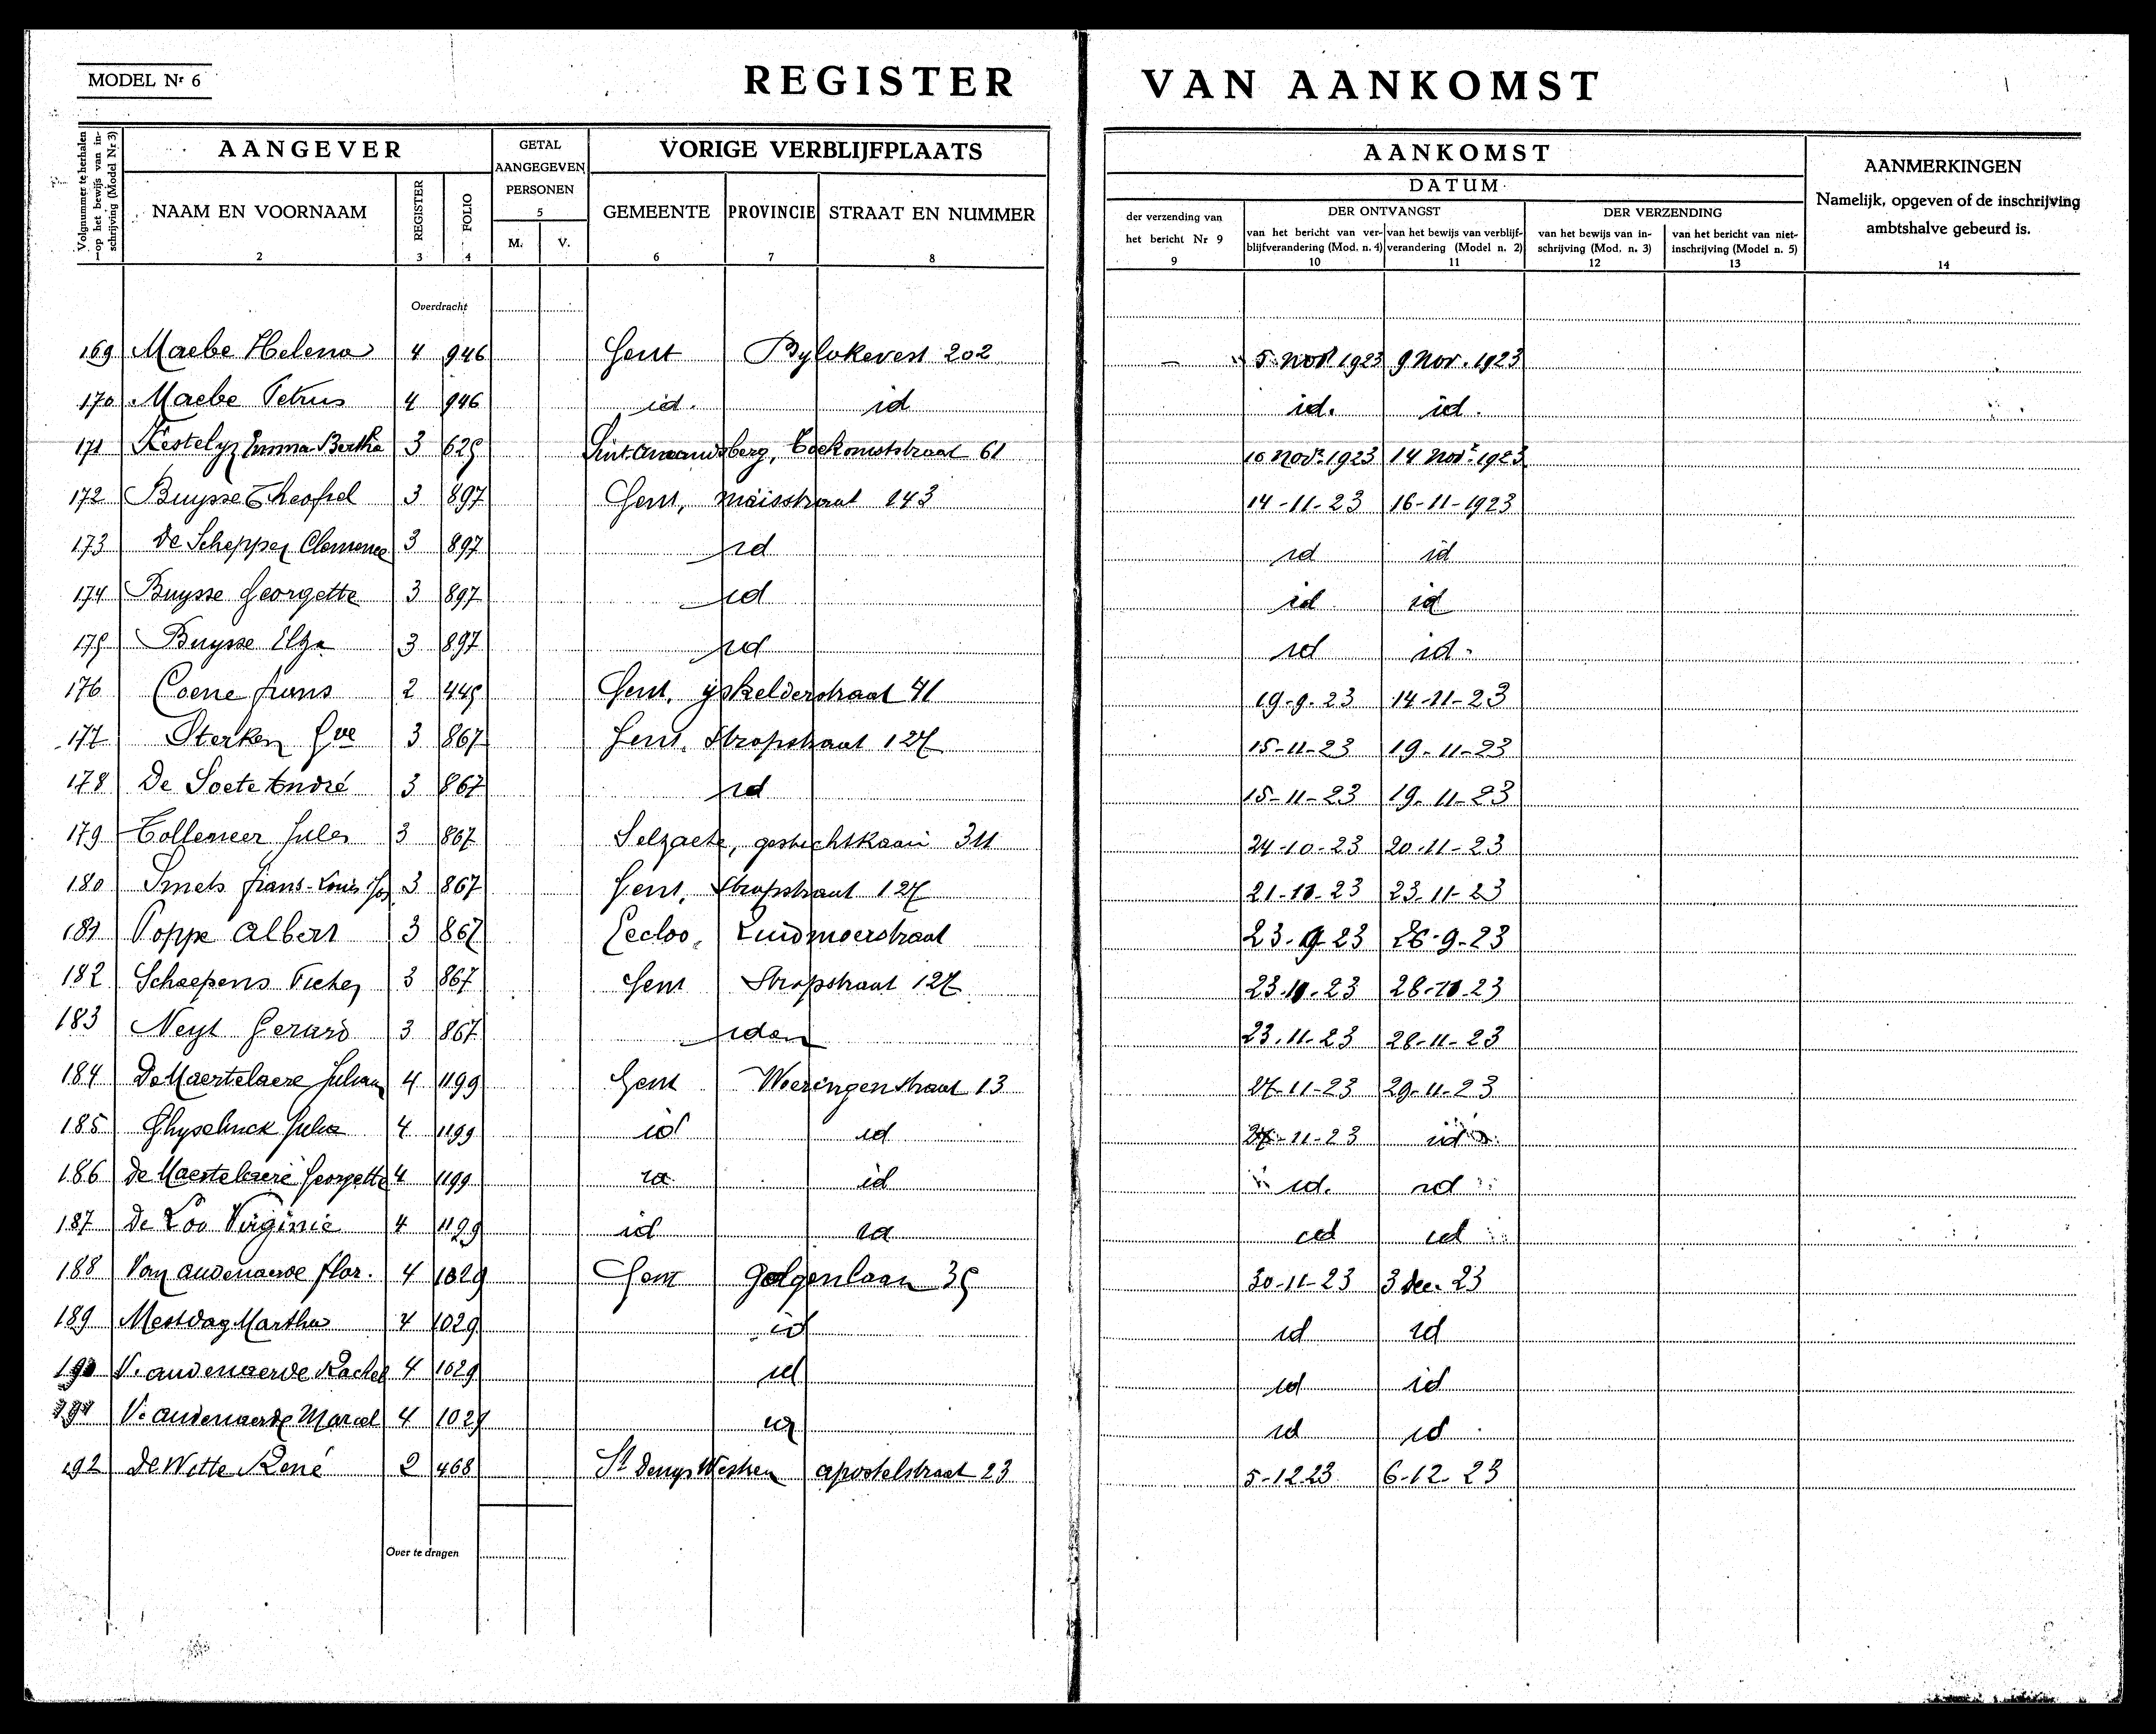 MODEL Nr 6
REGISTER VAN AANKOMST
Volgnummer te herhalen op het bewijs van inschrijving (Model Nr 3)
AANGEVER
GETAL AANGEGEVEN PERSONEN
VORIGE VERBLIJFPLAATS
AANKOMST
DATUM
AANMERKINGEN
Namelijk, opgeven of de inschrijving
ambtshalve gebeurd is.
NAAM EN VOORNAAM REGISTER FOLIO 5 M. V. GEMEENTE PROVINCIE STRAAT EN NUMMER
der verzending van het bericht Nr 9
DER ONTVANGST
DER VERZENDING
van het bericht van verblijfverandering (Mod. n. 4)
van het bewijs van verblijfverandering (Model n. 2)
van het bewijs van inschrijving (Mod. n. 3)
van het bericht van niet-inschrijving (Model n. 5)
1 2 3 4 6 7 8 9 10 11 12 13 14
Overdracht
169 Maebe Helena 4 946 Gent Bylokevest 202 – 5 nov 1923 9 Nov. 1923
170 Maebe Petrus 4 946 id. id id. id.
171 Kestelyn Emma Bertha 3 625 Sint Amandsberg, Toekomststraat 61 10 Novr 1923 14 Novr 1923
172 Buysse Theofiel 3 897 Gent, maïsstraat 143 14-11-23 16-11-1923
173 De Schepper Clemence 3 897 id id id
174 Buysse Georgette 3 897 id id id
175 Buysse Elza 3 897 id id id.
176 Coene frans 2 445 Gent, ijskelderstraat 41 19-9-23 14-11-23
177 Sterken Gve 3 867 Gent, Stropstraat 127 15-11-23 19-11-23
178 De Soete André 3 867 id 15-11-23 19-11-23
179 Tolleneer Jules 3 867 Selzaete, gestichtkaai 311 24-10-23 20-11-23
180 Smets frans-Louis-Jos 3 867 Gent, Stropstraat 127 21-11-23 23-11-23
181 Poppe Albert 3 867 Eecloo, Zuidmoerstraat 23-9-23 26-9-23
182 Schaepens 3 867 Gent Stropstraat 127 23-11-23 28-11-23
183 Neyt Gerard 3 867 idem 23-11-23 28-11-23
184 DeMaertelaere Julien 4 1199 Gent Woeringenstraat 13 27-11-23 29-11-23
185 Ghyselinck Julia 4 1199 id id 27-11-23 id
186 de Maertelaere Georgette 4 1199 id id id. id
187 De Loo Virginie 4 1199 id id id id
188 Van audenaerde flor. 4 1029 Gent Galgenlaan 35 30-11-23 3 dec. 23
189 Mestdag Martha 4 1029 id id id
190 V. audenaerde Rachel 4 1029 id id id
191 V. audenaerde Marcel 4 1029 id id id
192 De Witte René 2 468 St Denys Westrem apostelstraat 23 5-12 23 6-12-23
Over te dragen